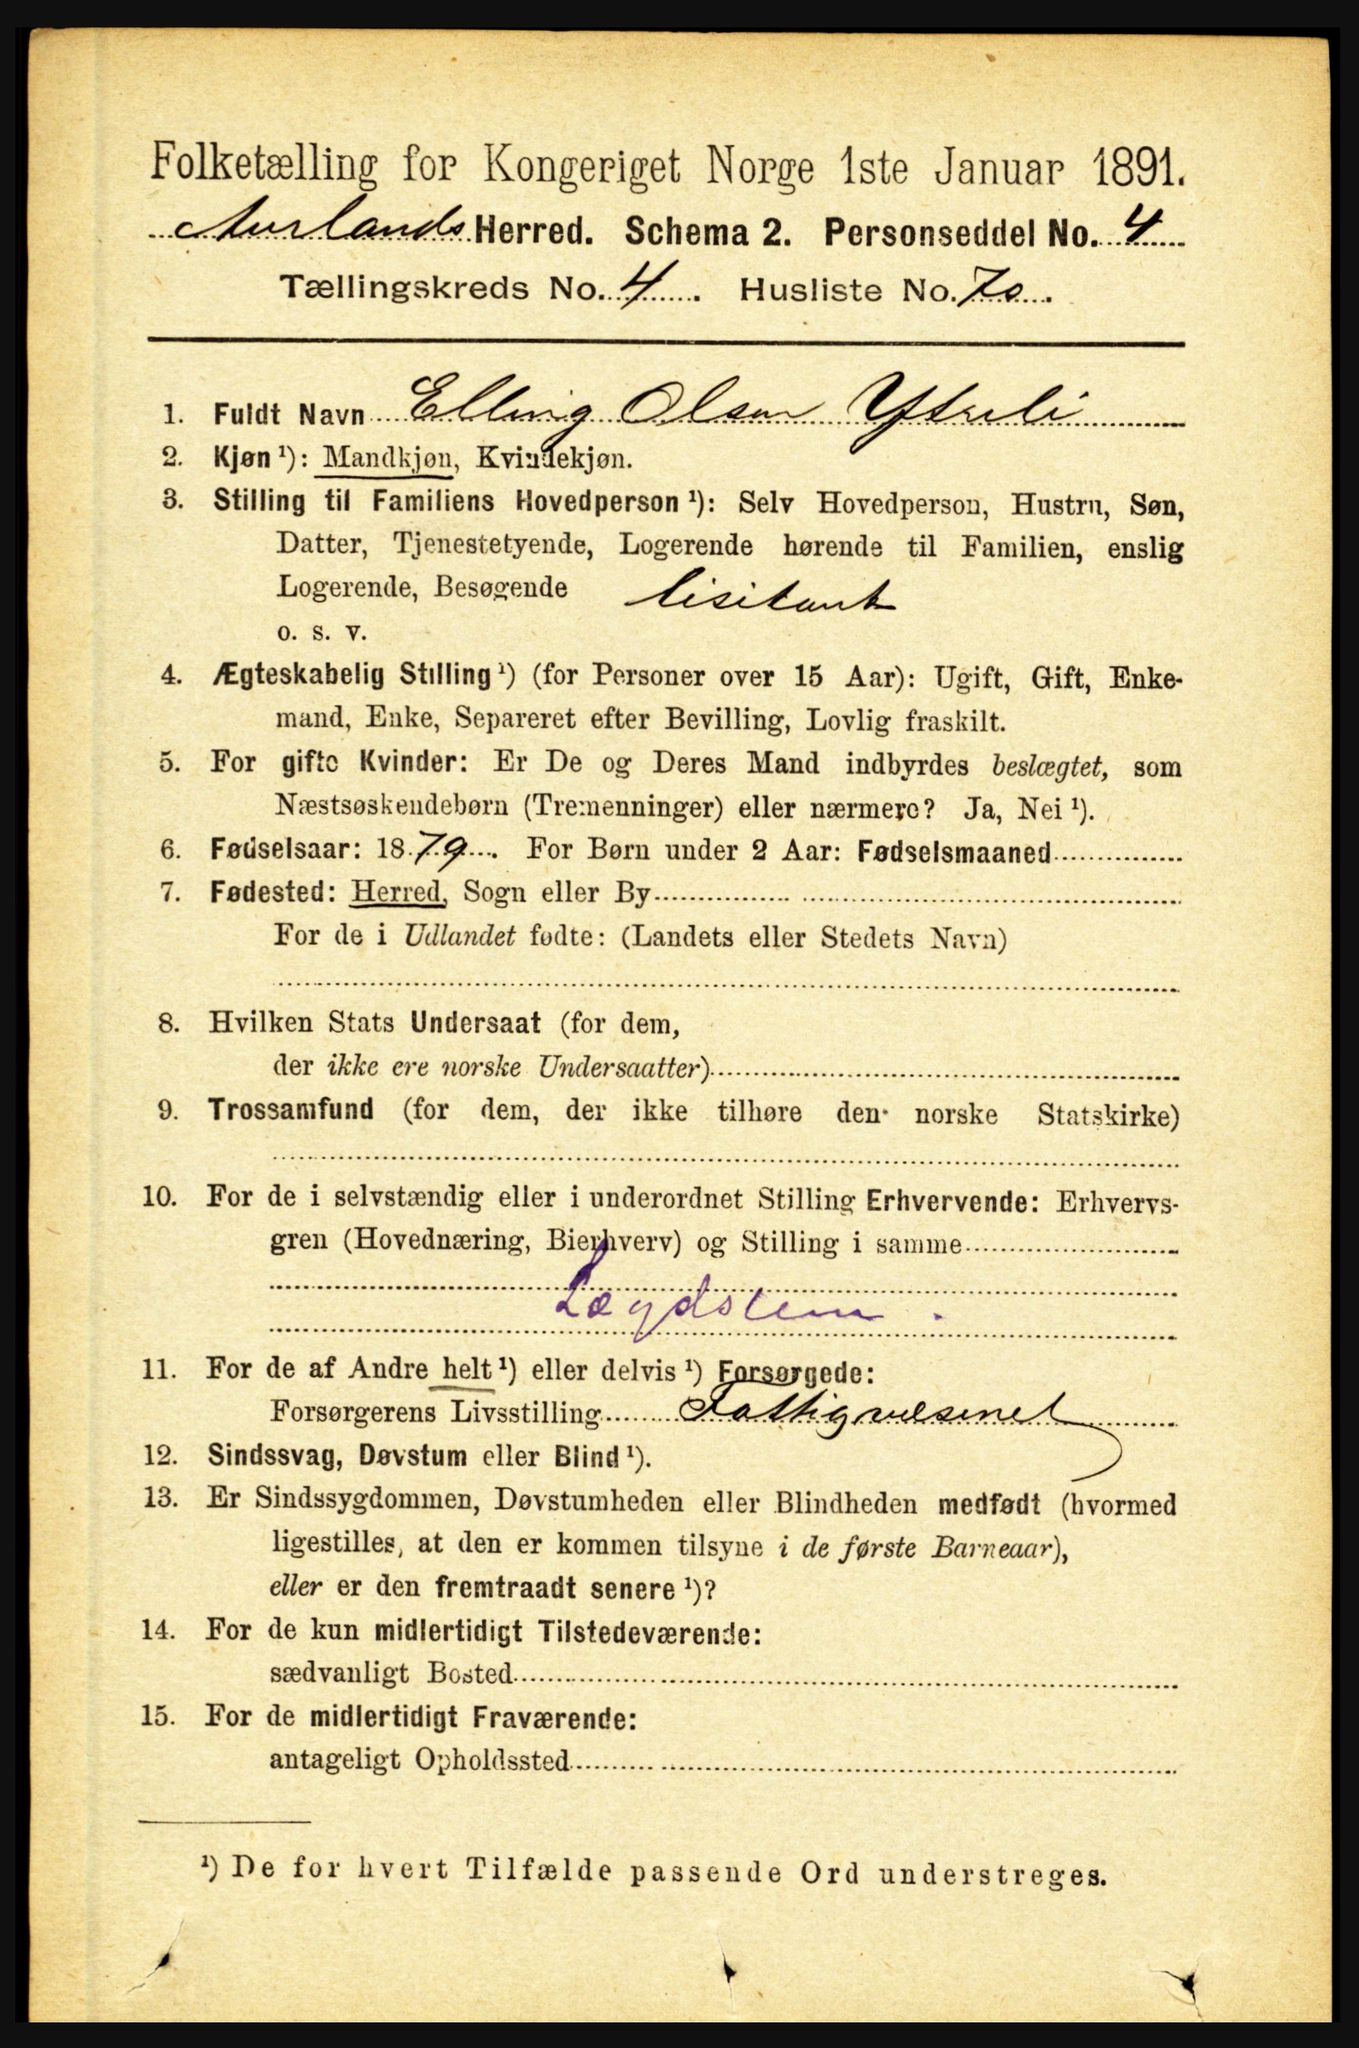 Folketælling for Kongeriget Norge 1ste Januar 1891.
Aurlands Herred. Schema 2. Personseddel No. 4
Tællingskreds No. 4. Husliste No. 70.
1. Fuldt Navn Elling Olsen Ytreli
2. Kjøn ¹): Mandkjøn, Kvindekjøn.
3. Stilling til Familiens Hovedperson ¹): Selv Hovedperson, Hustru, Søn,
Datter, Tjenestetyende, Logerende hørende til Familien, enslig
Logerende, Besøgende visitant
o. s. v.
4. Ægteskabelig Stilling ¹) (for Personer over 15 Aar): Ugift, Gift, Enke-
mand, Enke, Separeret efter Bevilling, Lovlig fraskilt.
5. For gifte Kvinder: Er De og Deres Mand indbyrdes beslægtet, som
Næstsøskendebørn (Tremenninger) eller nærmere? Ja, Nei ¹).
6. Fødselsaar: 1879. For Børn under 2 Aar: Fødselsmaaned
7. Fødested: Herred, Sogn eller By
For de i Udlandet fødte: (Landets eller Stedets Navn)
8. Hvilken Stats Undersaat (for dem,
der ikke ere norske Undersaatter)
9. Trossamfund (for dem, der ikke tilhøre den norske Statskirke)
10. For de i selvstændig eller i underordnet Stilling Erhvervende: Erhvervs-
gren (Hovednæring, Bierhverv) og Stilling i samme
Lægdslem.
11. For de af Andre helt ¹) eller delvis ¹) Forsørgede:
Forsørgerens Livsstilling Fattigvæsenet
12. Sindssvag, Døvstum eller Blind ¹).
13. Er Sindssygdommen, Døvstumheden eller Blindheden medfødt (hvormed
ligestilles, at den er kommen tilsyne i de første Barneaar),
eller er den fremtraadt senere ¹)?
14. For de kun midlertidigt Tilstedeværende:
sædvanligt Bosted
15. For de midlertidigt Fraværende:
antageligt Opholdssted
¹) De for hvert Tilfælde passende Ord understreges.